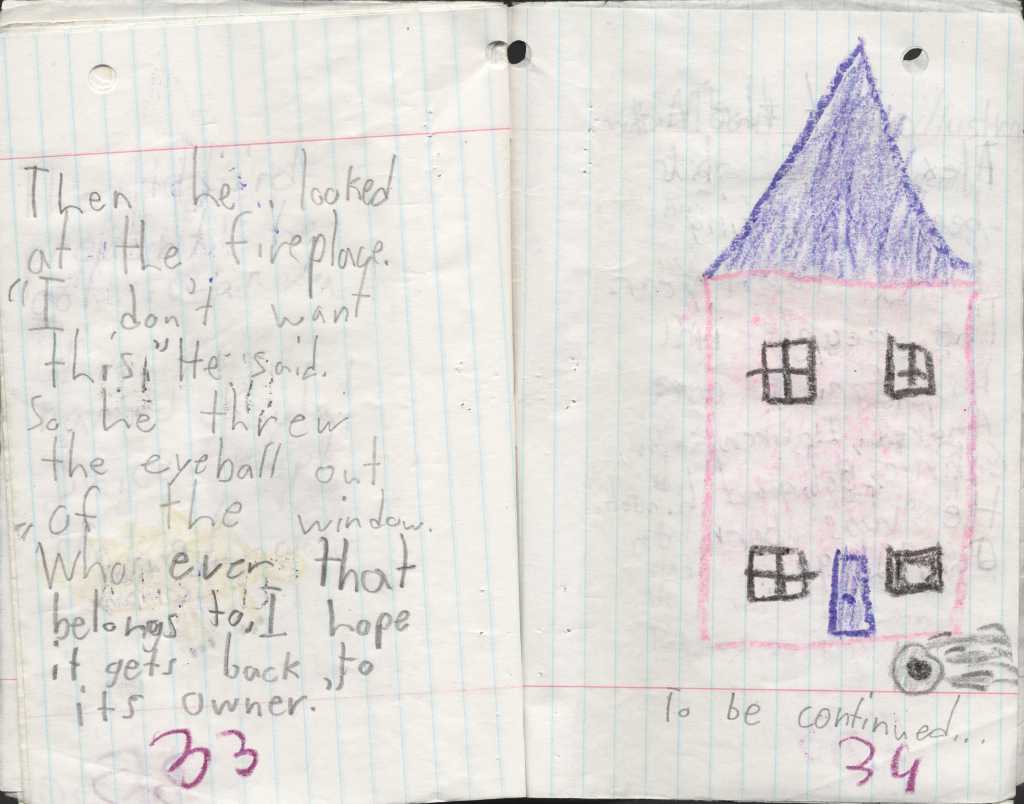 Then he looked
at the fireplace.
"I don't want
this," He said.
So he threw
the eyeball out
of the window.
"Who ever that
belongs to, I hope
it gets back to
its owner.
33
To be continued...
34